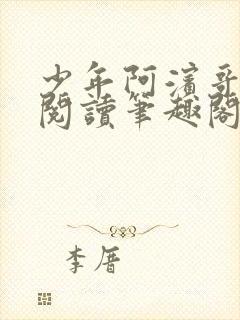 少年阿濱哥
閱讀筆趣閣
李厝